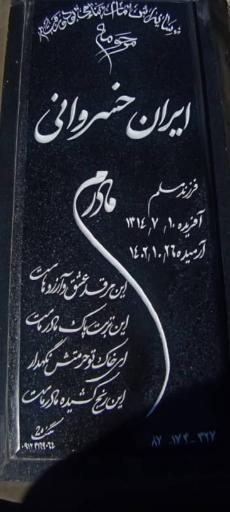 مرحومه
ایران خسروانی
مادرم
فرزند سلم
آفریده ۱۳۱۴/۷/۱۰
آرمیده ۱۴۰۲/۱۰/۲۶
این مرقد عشق و آرزوهاست
این تربت پاک مادر ماست
ای خاک تو حرمتش نگهدار
این رنج کشیده مادر ماست
۸۷-۱۷۴-۳۲۷